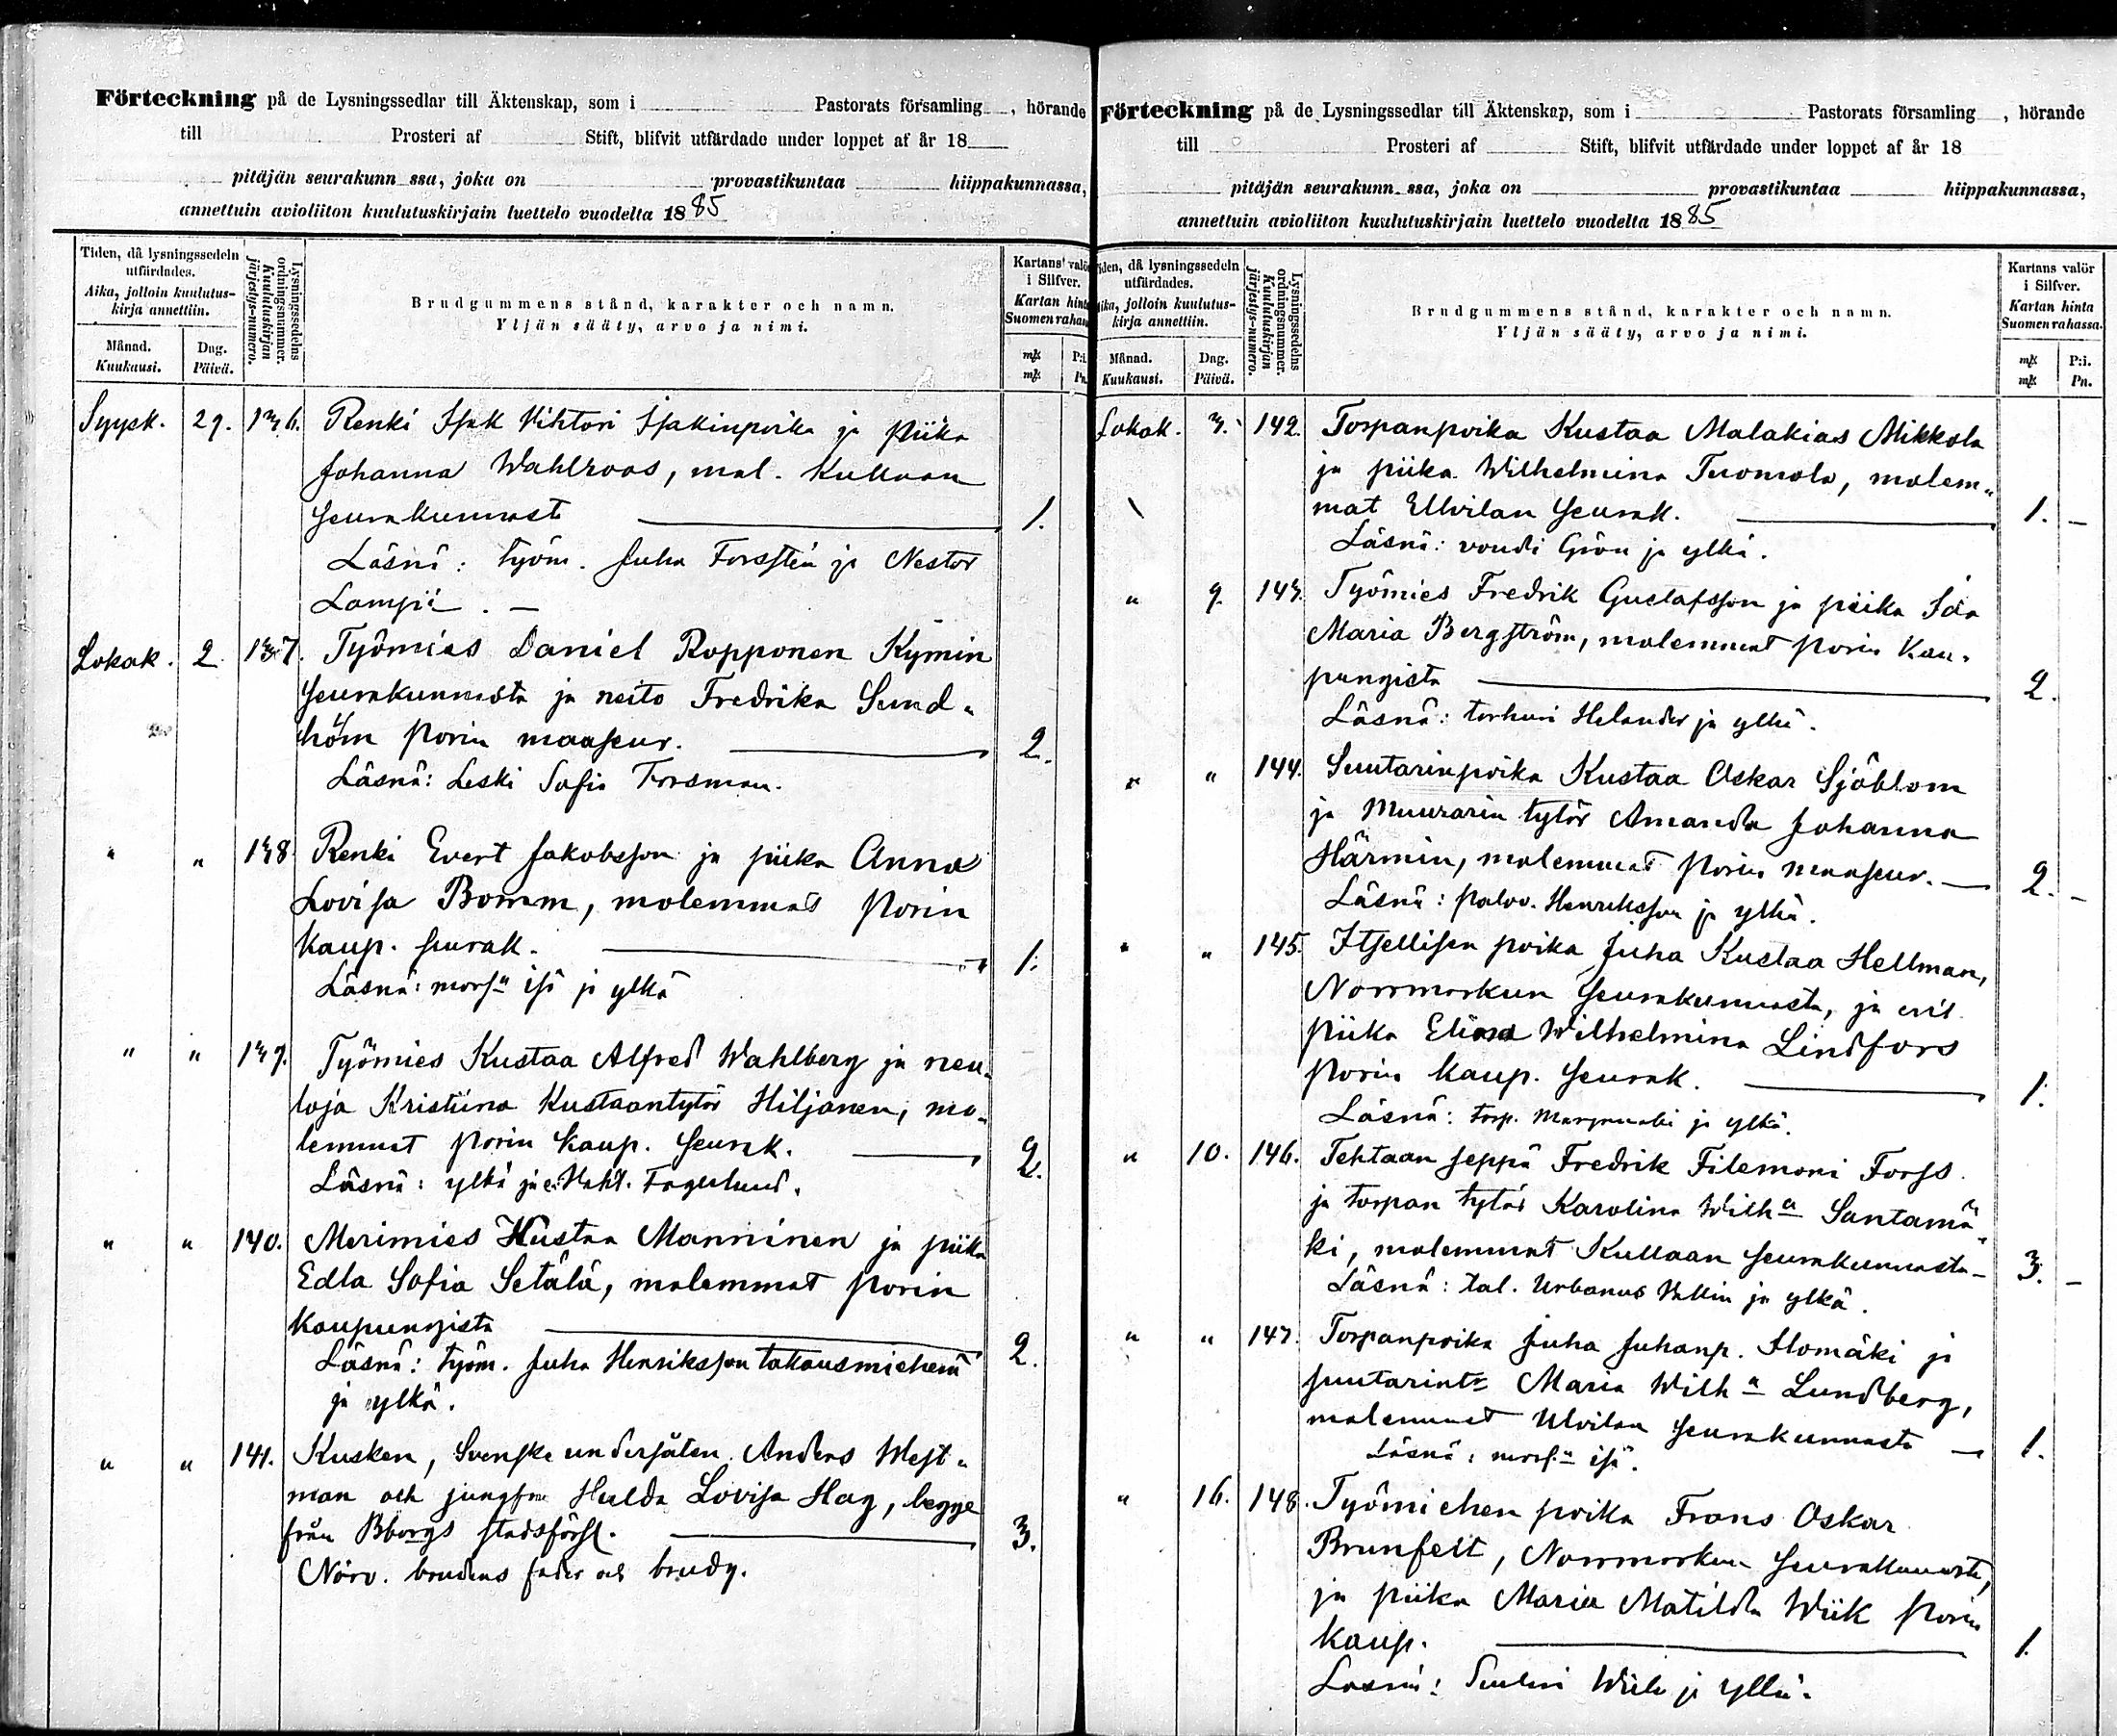 Förteckning på de Lysningssedlar till Äktenskap, som i Pastorats församling , hörande
till Prosteri af Stift, blifvit utfärdade under loppet af år 18
pitäjän seurakunn ssa, joka on provastikuntaa hiippakunnassa,
annettuin avioliiton kuulutuskirjain luettelo vuodelta 1885
Tiden, då lysningssedeln utfärdades.
Aika, jolloin kuulutus-kirja annettiin.
Månad. Kuukausi.
Dag. Päivä.
Lysningssedelns ordningsnummer.
Kuulutuskirjan järjestys-numero.
Brudgummens stånd, karakter och namn.
Yljän sääty, arvo ja nimi.
Kartans valör i Silfver.
Kartan hinta Suomen rahassa.
mk P:i
mk Pn.
Syysk. 29. 136. Renki Isak Vihtori Isakinpoika ja piika
Johanna Wahlroos, mol. Kullaan
seurakunnasta 1.
Läsnä: työm. Juha Forsstén ja Nestor
Lampi. —
Lokak. 2. 137. Työmies Daniel Ropponen Kymin
seurakunnasta ja neito Fredrika Sund-
höm Porin maaseur. 2.
Läsnä: Leski Sofia Forsman.
" " 138 Renki Evert Jakobsson ja piika Anna
Lovisa Bomm, molemmat Porin
Kaup. seurak. 1.
Läsnä: mors:n isä ja ylkä
" " 139. Työmies Kustaa Alfred Wahlberg ja neu-
loja Kristiina Kustaantytär Hiljanen, mo-
lemmat Porin Kaup. seurak. 2.
Läsnä: ylkä ja Fagerlund.
" " 140. Merimies Kustaa Manninen ja piika
Edla Sofia Setälä, molemmat Porin
Kaupungista 2.
Läsnä: työm. Juha Henriksson takausmiehenä
ja ylkä.
" " 141. Kusken, Svenske undersåten Anders West-
man och jungfru Hulda Lovisa Hag, begge
från Bborgs stadsförsl. 3.
Närv. brudens fader och brudg.
Förteckning på de Lysningssedlar till Äktenskap, som i Pastorats församling , hörande
till Prosteri af Stift, blifvit utfärdade under loppet af år 18
pitäjän seurakunn ssa, joka on provastikuntaa hiippakunnassa,
annettuin avioliiton kuulutuskirjain luettelo vuodelta 1885
Tiden, då lysningssedeln utfärdades.
Aika, jolloin kuulutus-kirja annettiin.
Månad. Kuukausi.
Dag. Päivä.
Lysningssedelns ordningsnummer.
Kuulutuskirjan järjestys-numero.
Brudgummens stånd, karakter och namn.
Yljän sääty, arvo ja nimi.
Kartans valör i Silfver.
Kartan hinta Suomen rahassa.
mk P:i.
mk Pn.
Lokak. 3. 142. Torpanpoika Kustaa Malakias Mikkola
ja piika Wilhelmina Tuomola, molem-
mat Ulvilan seurak. 1. —
Läsnä: voudi Grön ja ylkä.
" 9. 143. Työmies Fredrik Gustafsson ja piika Ida
Maria Bergström, molemmat Porin Kau-
pungista 2.
Läsnä: torhuri Helander ja ylkä.
" " 144. Suutarinpoika Kustaa Oskar Sjöblom
ja Muurarin tytär Amanda Johanna
Härmin, molemmat Porin maaseur. — 2. —
Läsnä: palov. Henriksson ja ylkä.
" " 145. Itsellisen poika Juha Kustaa Hellman,
Norrmarkun seurakunnasta, ja
piika Elina Wilhelmina Lindfors
Porin Kaup. seurak. 1.
Läsnä: torp. ja ylkä.
" 10. 146. Tehtaan seppä Fredrik Filemoni Forss
ja torpan tytär Karolina Wilh:a Santamä-
ki, molemmat Kullaan seurakunnasta — 3. —
Läsnä: tal. Urbanus Vallin ja ylkä.
" " 147. Torpanpoika Juha Juhanp. Ilomäki ja
suutarintr Maria Wilh:a Lundberg,
molemmat Ulvilan seurakunnasta — 1.
Läsnä: mors:n isä.
" 16. 148. Työmiehen poika Frans Oskar
Brunfelt, Norrmarkun seurakunnasta,
ja piika Maria Matilda Wiik Porin
Kaup. 1.
Läsnä: Wiik ja ylkä.